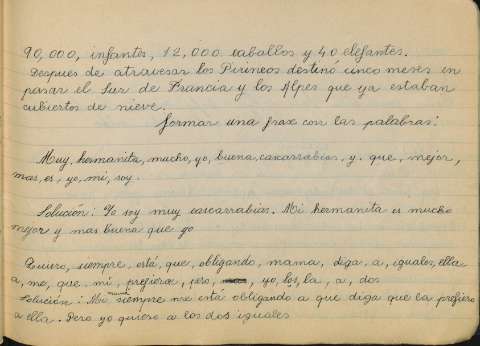 90,000, infantes, 12,000 caballos y 40 elefantes.
Despues de atravesar los Pirineos destinó cinco meses en
pasar el Sur de Francia y los Alpes que ya estaban
cubiertos de nieve.
formar una frase con las palabras:
Muy, hermanita, mucho, yo, buena, cascarrabias, y, que, mejor,
mas, es, yo, mi, soy.
Solución: Yo soy muy cascarrabias. Mi hermanita es mucho
mejor y mas buena que yo
Quiero, siempre, está, que, obligando, mama, diga, a, iguales, ella
a, me, que, mi, prefiera, pero, yo, los, la, a, dos
mamá
Solución: Mi siempre me está obligando a que diga que la prefiero
a ella. Pero yo quiero a los dos iguales